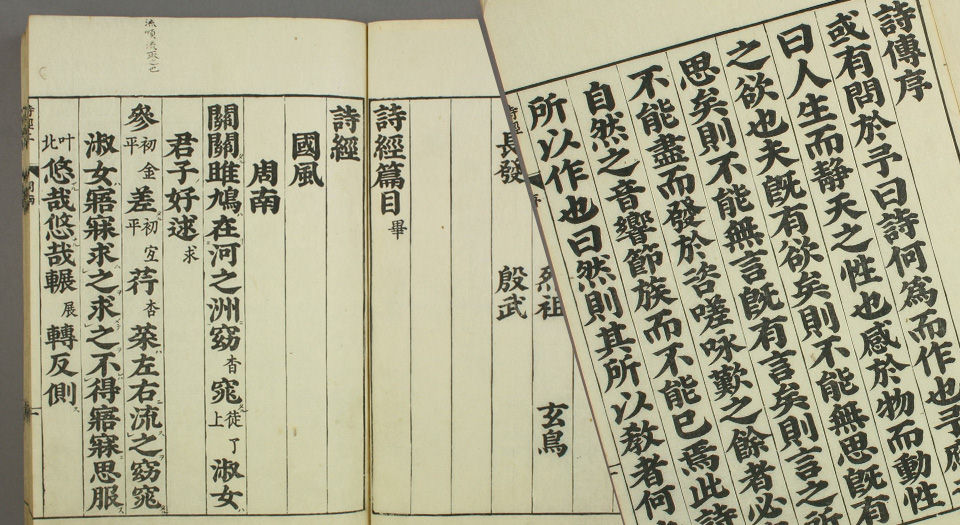 詩傳序
或有問於予曰詩何爲而作也予
曰人生而静天之性也感於物而動性
之欲也夫旣有欲矣則不能無思旣有
思矣則不能無言旣有言矣則言之
不能盡而發於咨嗟咏歎之餘者必
自然之音響節族而不能已焉此詩
所以作也曰然則其所以敎者何
烈祖 玄鳥
長發 殷武
詩經篇目 畢
詩經
國風
周南
關關雎鳩在河之洲窈杳窕徒了上淑女
君子好逑求
參初金平差初宐平荇杏菜左右流之窈窕
淑女寤寐求之求之不得寤寐思服
叶北悠哉悠哉輾展轉反側